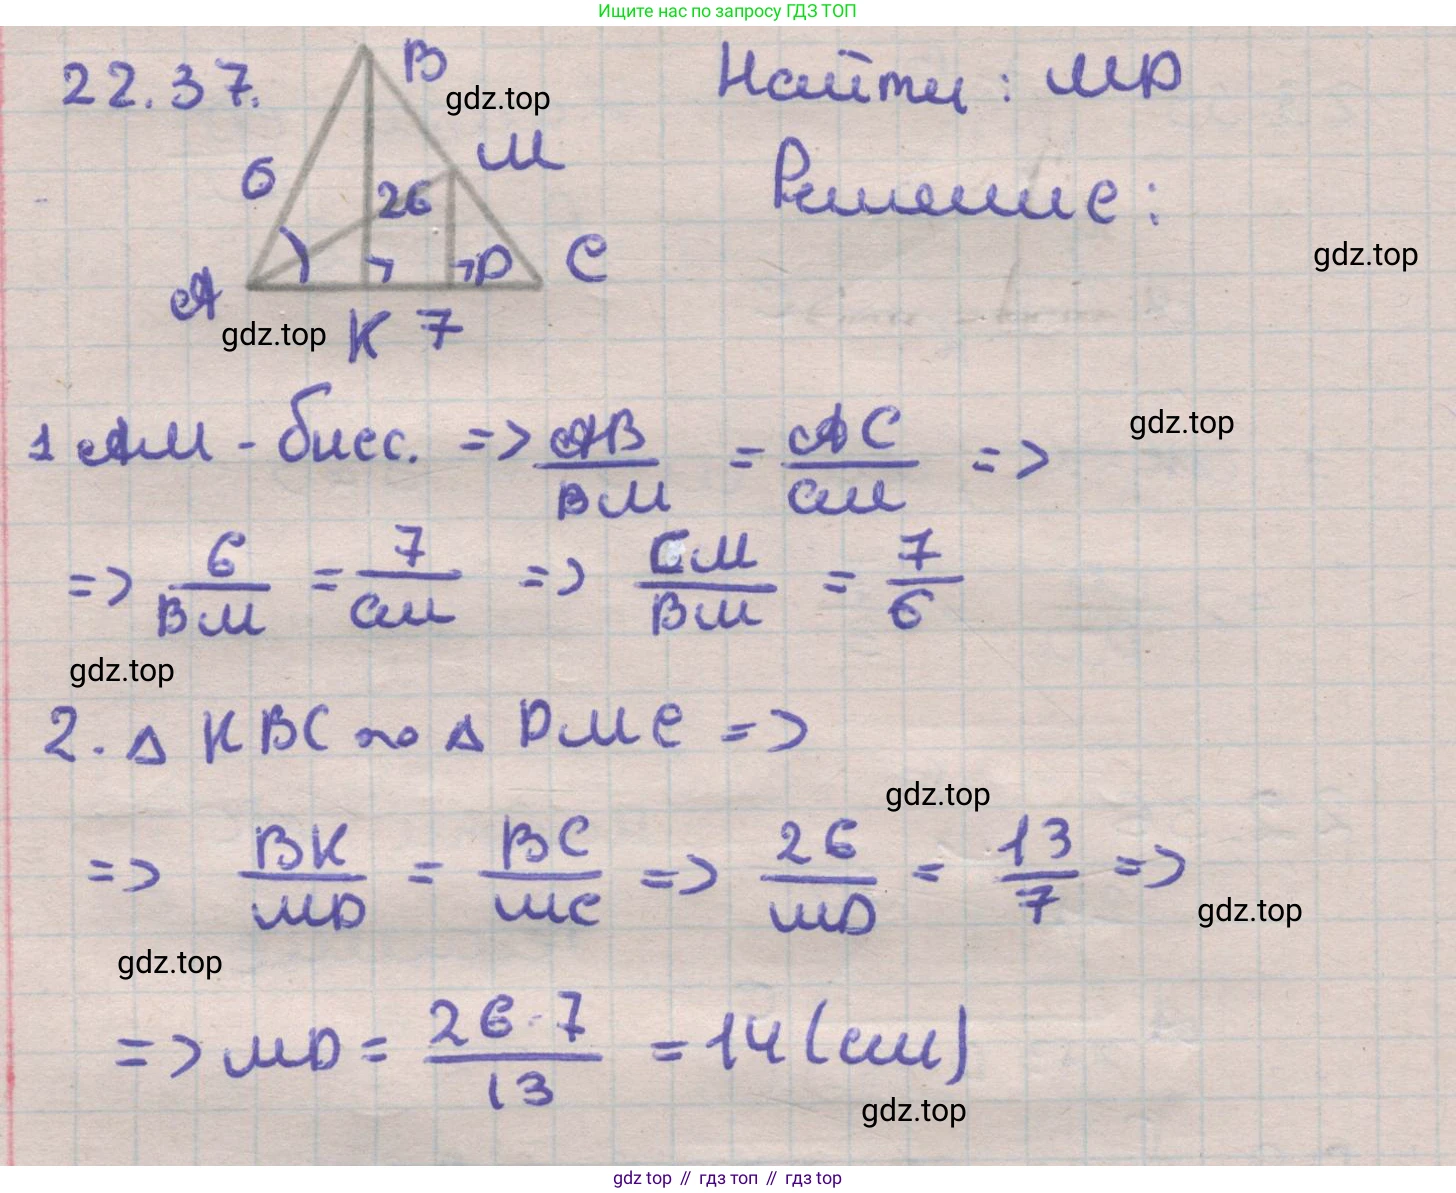 Ищите нас по запросу ГДЗ ТОП
22.37.
B
gdz.top
Найти: MD
M
6
26
Решение:
D
C
gdz.top
A
gdz.top
K 7
1 AM - бисс. => AB/BM = AC/CM =>
gdz.top
=> 6/BM = 7/CM => CM/BM = 7/6
gdz.top
2. Δ KBC ∾ Δ DMC =>
gdz.top
=> BK/MD = BC/MC => 26/MD = 13/7 =>
gdz.top
gdz.top
=> MD = 26·7/13 = 14 (см)
gdz.top
gdz top // гдз топ // гдз.top